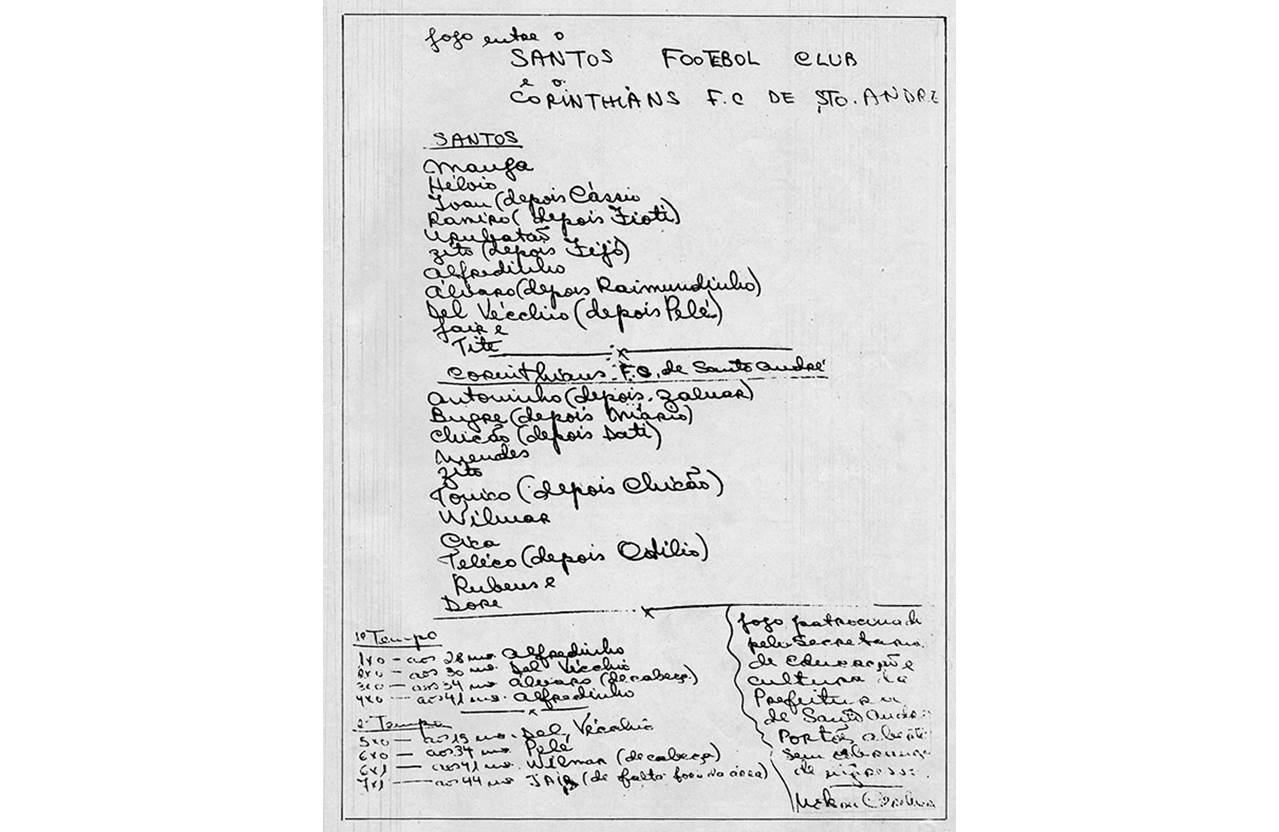 Jogo entre o
SANTOS FOOTEBOL CLUB
e o
CORINTHIANS F.C DE STO. ANDRE
SANTOS
Manga
Hélvio
Ivan (depois Cássio
Ramiro (depois Fioti)
Urubatão
Zito (depois Feijó)
Alfredinho
Álvaro (depois Raimundinho)
Del Vécchio (depois Pelé)
Jair e
Tite
x
Corinthians F.C. de Santo André
Antoninho (depois. Zaluar)
Bugre (depois Mário)
Chicão (depois Dati)
Mendes
Zito
Tonico (depois Chicão)
Wilmar
Cica
Teléco (depois Odilio)
Rubens e
Dore
x
1º Tempo
1x0 - aos 28 m. Alfredinho
2x0 - aos 30 m. Del Vécchio
3x0 - aos 34 m. Álvaro (de cabeça)
4x0 - aos 41 m. Alfredinho
x
2º Tempo
5x0 - aos 15 m. Del Vécchio
6x0 - aos 34 m. Pelé
6x1 - aos 41 m. Wilmar (de cabeça)
7x1 - aos 44 m. JAIR (de falta fora da área)
Jogo patrocinado
pela Secretaria
de Educação e
cultura da
Prefeitura
de Santo André
Portões abertos
sem cobrança
de ingresso